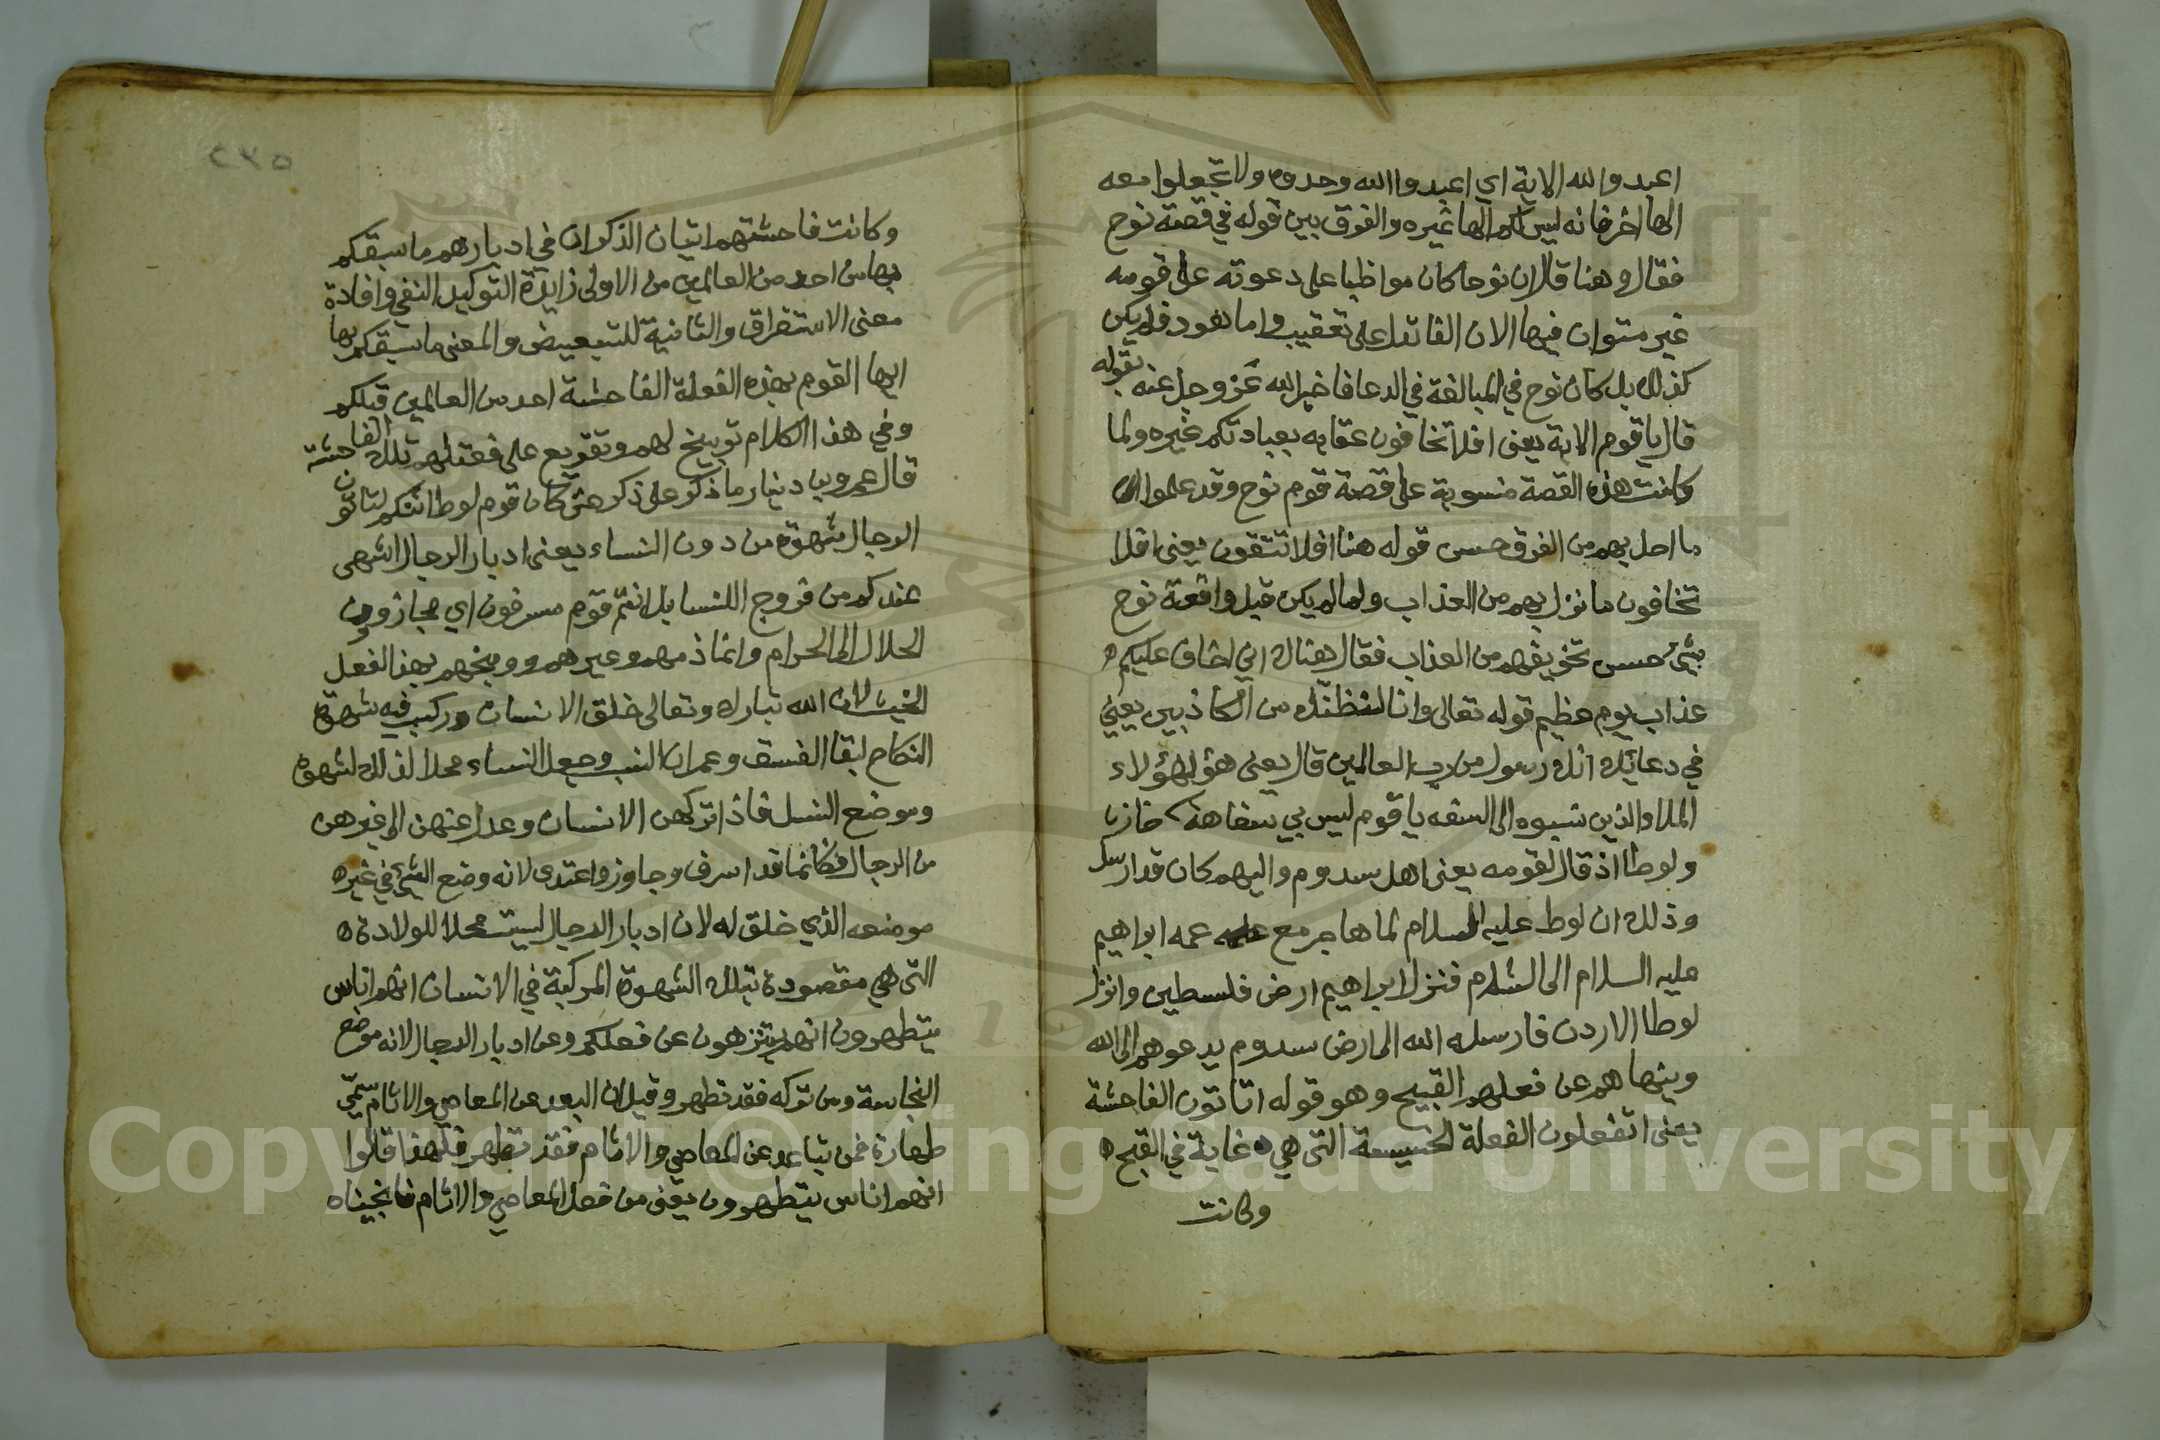 اعبدوا الله الاية اي اعبدوا الله وحده ولا تجعلوا معه
الها اخر فانه ليس لكم الها غيره والفرق بين قوله في قصة نوح
فقال وهنا قال ان نوحا كان مواظبا على دعوته على قومه
غير متوان فيها لان الفا تدل على تعقيب واما هود فلم يكن
كذلك بل كان نوح في المبالغة في الدعا فاخبر الله عز وجل عنه بقوله
قال يا قوم الاية يعنى افلا تخافون عقابه بعبادتكم غيره ولما
كانت هذه القصة منسوبة على قصة قوم نوح وقد علموا
ما احل بهم من الغرق حسن قوله هنا افلا تتقون يعنى افلا
تخافون ما نزل بهم من العذاب ولما لم يكن قبل واقعة نوح
شيء حسن تخويفهم من العذاب فقال هناك اني اخاف عليكم
عذاب يوم عظيم قوله تعالى وانا لنظنك من الكاذبين يعني
في دعائك انك رسول من رب العالمين قال يعنى هؤ لهؤلاء
الملا والذين نسبوه الى السفه يا قوم ليس بي سفاهة خازن
ولوطا اذ قال لقومه يعنى اهل سدوم واليهم كان قد ارسل
وذلك ان لوط عليه السلام لما هاجر مع عمه ابراهيم
عليه السلام الى الشام فنزل ابراهيم ارض فلسطين وانزل
لوطا الاردن فارسله الله الى ارض سدوم يدعوهم الى الله
وينهاهم عن فعلهم القبيح وهو قوله اتاتون الفاحشة
يعنى اتفعلون الفعلة الخسيسة التى هي غاية في القبح
وكانت
٢٣٥
وكانت فاحشتهم اتيان الذكران في ادبارهم ما سبقكم
بها من احد من العالمين من الاولى زايدة التوكيد النفي وافادة
معنى الاستغراق والثانية للتبعيض والمعنى ما سبقكم بها
ايها القوم بهذه الفعلة الفاحشة احد من العالمين قبلكم
وفي هذا الكلام توبيخ لهم وتقريع على فعلهم تلك الفاحشة
قال عمرو بن دينار ما ذكر على ذكر حتى كان قوم لوط انكم لتاتون
الرجال شهوة من دون النساء يعنى ادبار الرجال اشهى
عندكم من فروج النسا بل انتم قوم مسرفون اي مجاوزون
الحلال الى الحرام وانما ذمهم وعيرهم ووبخهم بهذا الفعل
الخبيث لان الله تبارك وتعالى خلق الانسان وركب فيه شهوة
النكاح لبقا وعمران وجعل النساء محلا لذلك لشهوة
وموضع النسل فاذا تركهن الانسان وعدل عنهن الى غيرهن
من الرجال فكانما قد اسرف وجاوز واعتدى لانه وضع الشيء في غيره
موضعه الذي خلق له لان ادبار الرجال ليست محلا للولادة
التى هي مقصودة بتلك الشهوة المركبة في الانسان انهم اناس
يتطهرون انهم يتنزهون عن فعلكم وعن ادبار الرجال لانه موضع
النجاسة ومن تركه فقد تطهر وقيل ان البعد عن المعاصي والاثام سمي
طهارة فمن تباعد عن المعاصي والاثام فقد تطهر فلهذا قالوا
انهم اناس يتطهرون يعنى من فعل المعاصي والاثام فانجيناه
Copyright © King Saud University